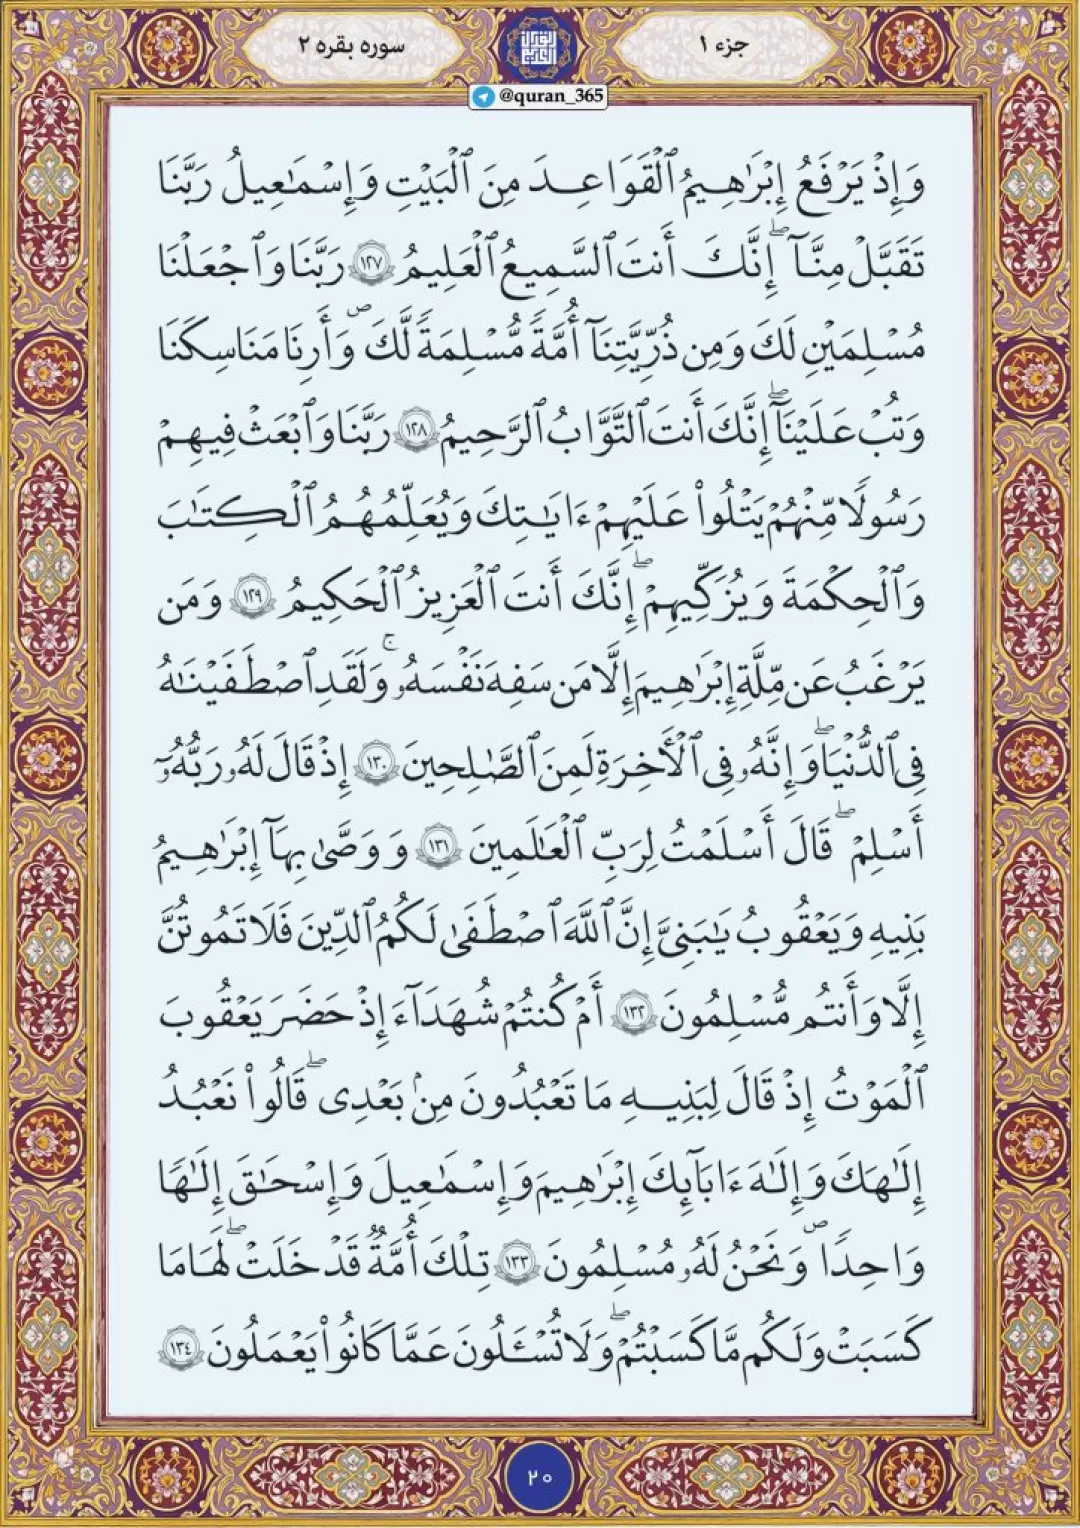 جزء ۱
سوره بقره ۲
@quran_365
وَإِذْ يَرْفَعُ إِبْرَٰهِيمُ ٱلْقَوَاعِدَ مِنَ ٱلْبَيْتِ وَإِسْمَٰعِيلُ رَبَّنَا
تَقَبَّلْ مِنَّآ ۖ إِنَّكَ أَنتَ ٱلسَّمِيعُ ٱلْعَلِيمُ ١٢٧ رَبَّنَا وَٱجْعَلْنَا
مُسْلِمَيْنِ لَكَ وَمِن ذُرِّيَّتِنَآ أُمَّةً مُّسْلِمَةً لَّكَ ص وَأَرِنَا مَنَاسِكَنَا
وَتُبْ عَلَيْنَآ ۖ إِنَّكَ أَنتَ ٱلتَّوَّابُ ٱلرَّحِيمُ ١٢٨ رَبَّنَا وَٱبْعَثْ فِيهِمْ
رَسُولًا مِّنْهُمْ يَتْلُوا۟ عَلَيْهِمْ ءَايَٰتِكَ وَيُعَلِّمُهُمُ ٱلْكِتَٰبَ
وَٱلْحِكْمَةَ وَيُزَكِّيهِمْ ۖ إِنَّكَ أَنتَ ٱلْعَزِيزُ ٱلْحَكِيمُ ١٢٩ وَمَن
يَرْغَبُ عَن مِّلَّةِ إِبْرَٰهِيمَ إِلَّا مَن سَفِهَ نَفْسَهُۥ ۚ وَلَقَدِ ٱصْطَفَيْنَٰهُ
فِى ٱلدُّنْيَا ۖ وَإِنَّهُۥ فِى ٱلْأَخِرَةِ لَمِنَ ٱلصَّٰلِحِينَ ١٣٠ إِذْ قَالَ لَهُۥ رَبُّهُۥٓ
أَسْلِمْ ۖ قَالَ أَسْلَمْتُ لِرَبِّ ٱلْعَٰلَمِينَ ١٣١ وَوَصَّىٰ بِهَآ إِبْرَٰهِيمُ
بَنِيهِ وَيَعْقُوبُ يَٰبَنِىَّ إِنَّ ٱللَّهَ ٱصْطَفَىٰ لَكُمُ ٱلدِّينَ فَلَا تَمُوتُنَّ
إِلَّا وَأَنتُم مُّسْلِمُونَ ١٣٢ أَمْ كُنتُمْ شُهَدَآءَ إِذْ حَضَرَ يَعْقُوبَ
ٱلْمَوْتُ إِذْ قَالَ لِبَنِيهِ مَا تَعْبُدُونَ مِنۢ بَعْدِى ۖ قَالُوا۟ نَعْبُدُ
إِلَٰهَكَ وَإِلَٰهَ ءَابَآئِكَ إِبْرَٰهِيمَ وَإِسْمَٰعِيلَ وَإِسْحَٰقَ إِلَٰهًا
وَاحِدًا ص وَنَحْنُ لَهُۥ مُسْلِمُونَ ١٣٣ تِلْكَ أُمَّةٌ قَدْ خَلَتْ ۖ لَهَا مَا
كَسَبَتْ وَلَكُم مَّا كَسَبْتُمْ ۖ وَلَا تُسْـَٔلُونَ عَمَّا كَانُوا۟ يَعْمَلُونَ ١٣٤
۲۰